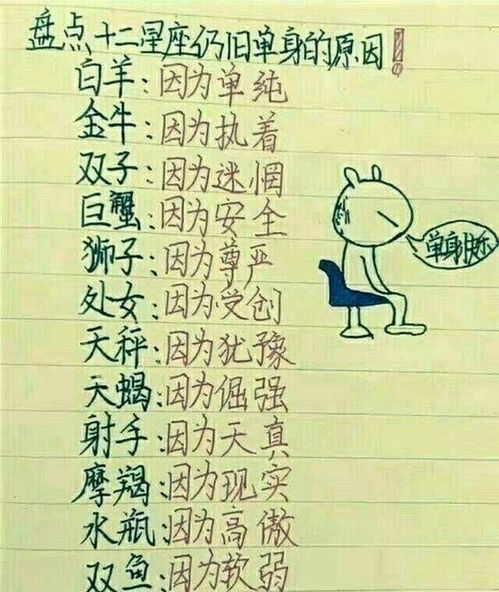 盘点十二星座仍旧单身的原因!
白羊:因为单纯
金牛:因为执着
双子:因为迷惘
巨蟹:因为安全
狮子:因为尊严
处女:因为受创
天秤:因为犹豫
天蝎:因为倔强
射手:因为天真
摩羯:因为现实
水瓶:因为高傲
双鱼:因为软弱
单身快乐